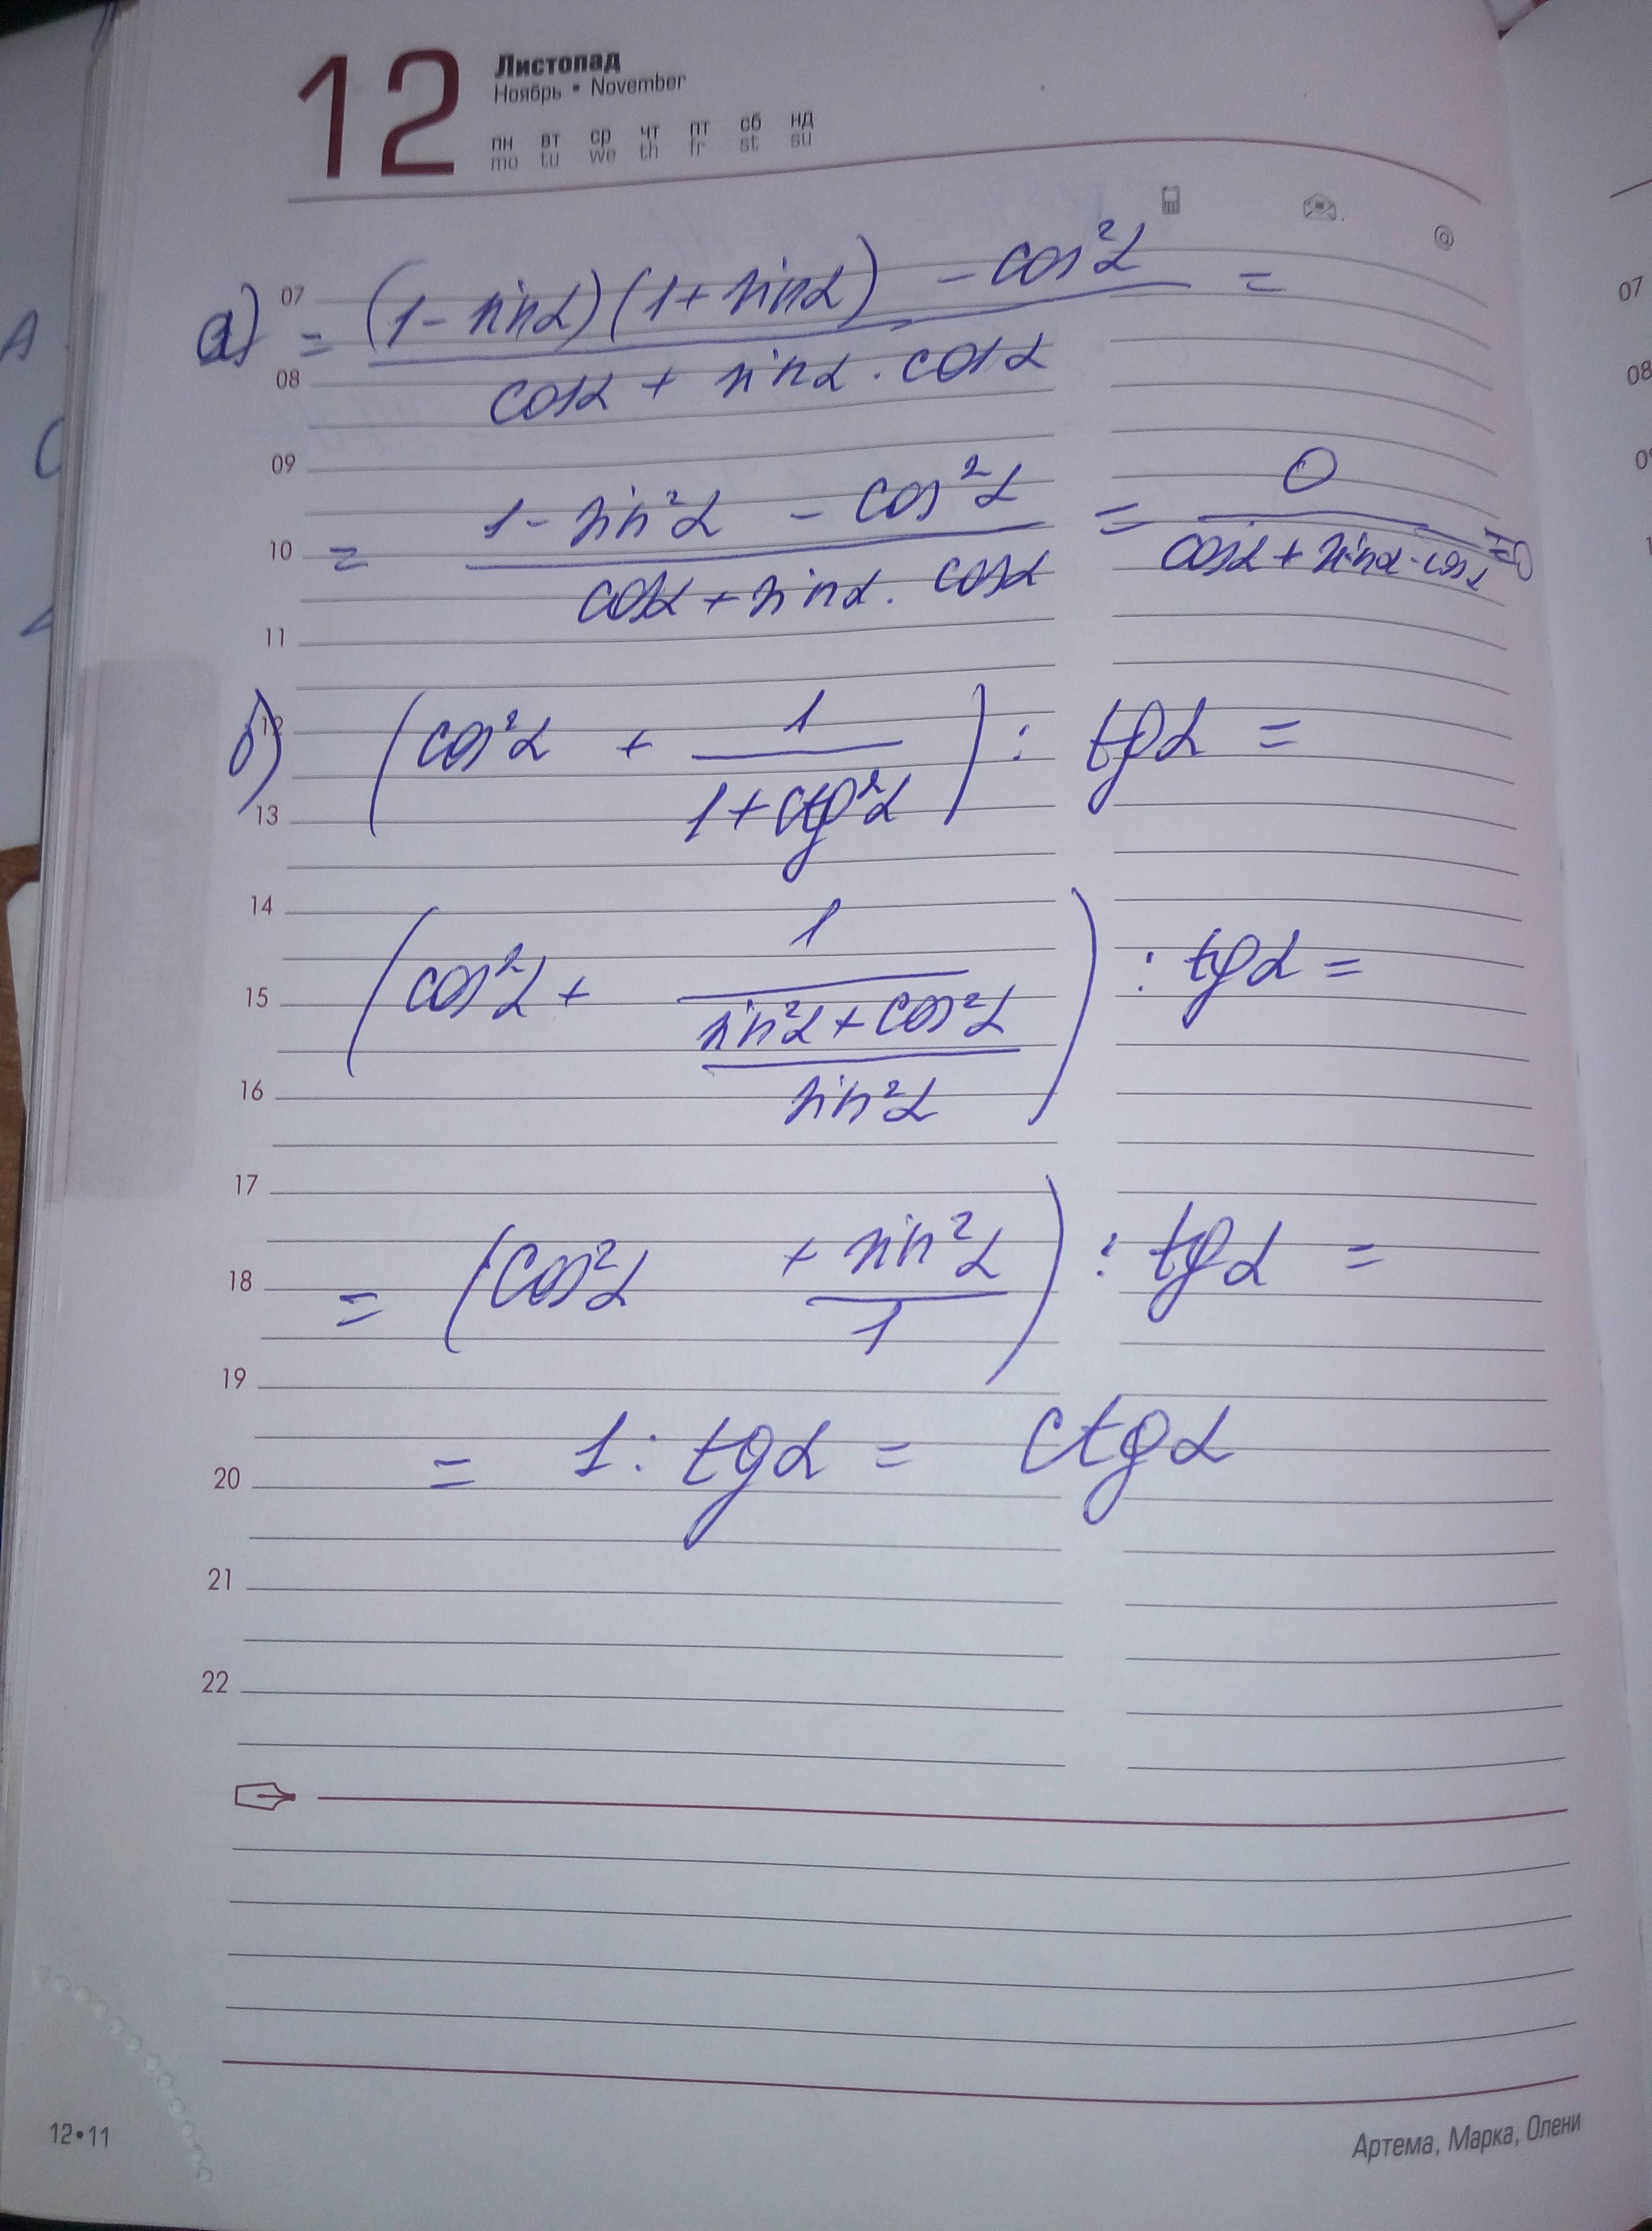 12
Листопад
Ноябрь • November
пн вт ср чт пт сб нд
mo tu we th fr st su
@
07
а) = ((1 - sinα)(1 + sinα) - cos²α) / (cosα + sinα · cosα) =
08
09
= (1 - sin²α - cos²α) / (cosα + sinα · cosα) = 0 / (cosα + sinα · cosα) = 0
10
11
12
б) (cos²α + 1 / (1 + ctg²α)) : tgα =
13
14
(cos²α + 1 / ((sin²α + cos²α) / sin²α)) : tgα =
15
16
17
= (cos²α + sin²α / 1) : tgα =
18
19
= 1 : tgα = ctgα
20
21
22
12•11
Артема, Марка, Олени
07
08
A
C